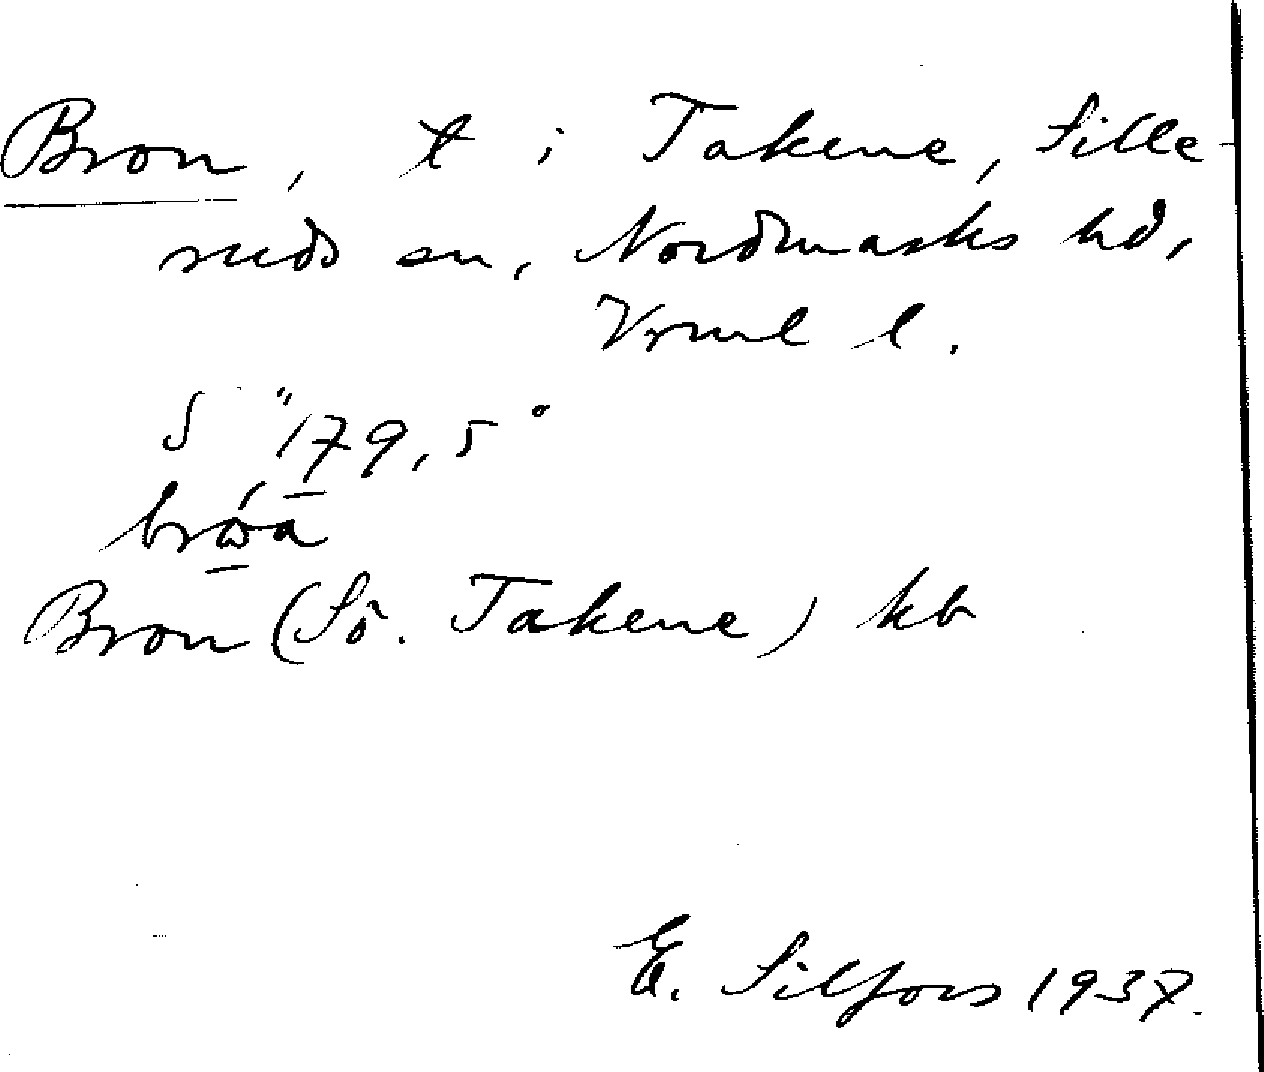 Bron, t i Takene, Sille-
ruds sn, Nordmarks hd,
Vrml l.
S "179,5"
Bron (Sö. Takene) kb
E. Silfors 1937.